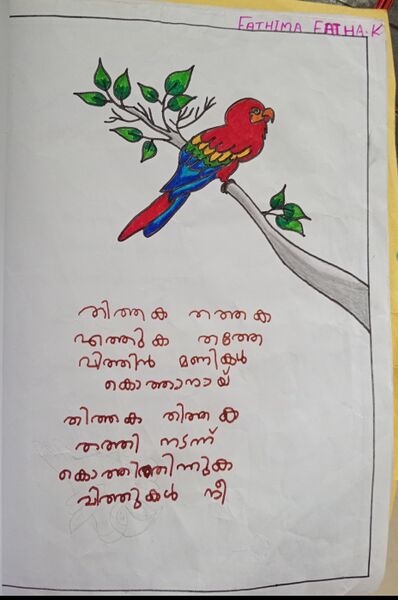 FATHIMA FATHA.K
തിത്തക തത്തക
എത്തുക തത്തേ
വിത്തിൻ മണികൾ
കൊത്താനായ്
തിത്തക തിത്തക
തത്തി നടന്ന്
കൊത്തിത്തിന്നുക
വിത്തുകൾ നീ